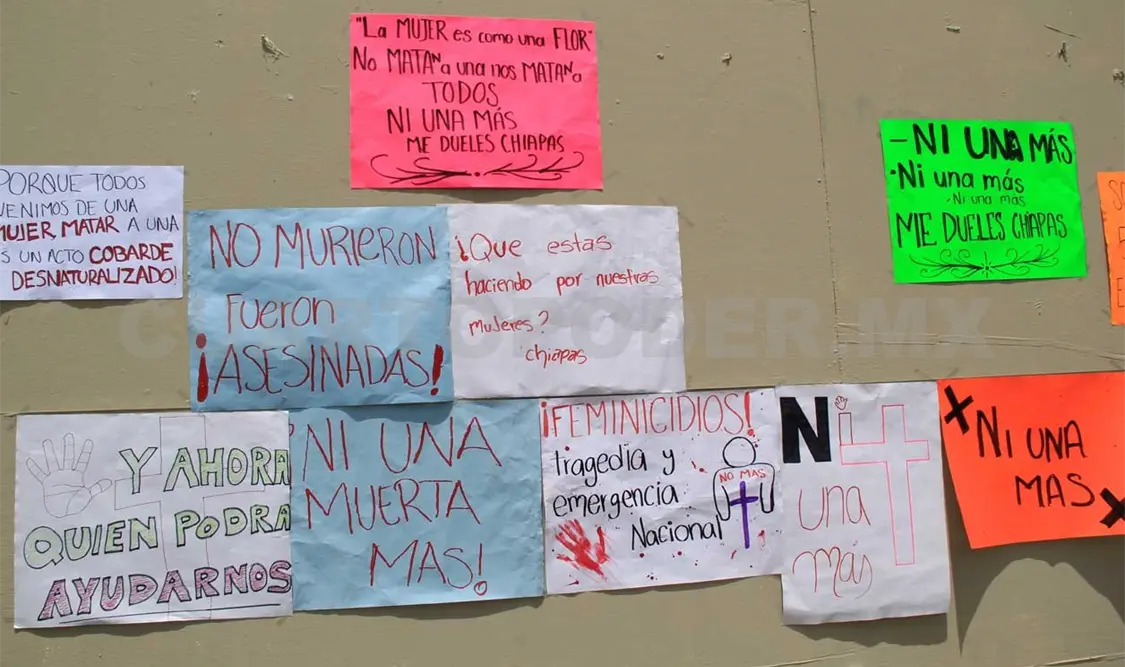 "La MUJER es como una FLOR"
No MATAN a una nos MATAN a
TODOS
NI UNA MÁS
ME DUELES CHIAPAS
- NI UNA MÁS
·Ni una más
·Ni una más
ME DUELES CHIAPAS
PORQUE TODOS
VENIMOS DE UNA
MUJER, MATAR A UNA
ES UN ACTO COBARDE
DESNATURALIZADO!
NO MURIERON
FUERON
¡ASESINADAS!
¡Que estas
haciendo por nuestras
mujeres?
chiapas
Y AHORA
QUIEN PODRA
AYUDARNOS
NI UNA
MUERTA
MAS!
¡FEMINICIDIOS!
tragedia y
emergencia
Nacional
NO MAS
Ni
una
más
NI UNA
MAS
CUARTOPODER.MX